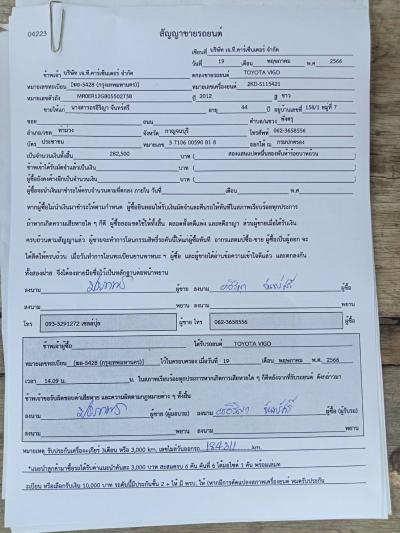 04223
สัญญาขายรถยนต์
เขียนที่ บริษัท เจ.ที.คาร์เซ็นเตอร์ จำกัด
วันที่ 19 เดือน พฤษภาคม พ.ศ 2566
ข้าพเจ้า บริษัท เจ.ที.คาร์เซ็นเตอร์ จำกัด ตกลงขายรถยนต์ TOYOTA VIGO
หมายเลขทะเบียน (ผอ-5428 (กรุงเทพมหานคร)) หมายเลขเครื่องยนต์ 2KD-S115421
หมายเลขตัวถัง MR0ER12G805502738 ปี 2012 สี ขาว
ขายให้แก่ อายุ 44 ปี อยู่บ้านเลขที่ 158/1 หมู่ที่ 7
ซอย ถนน ตำบล/แขวง พังตรุ
อำเภอ/เขต พนมทวน จังหวัด กาญจนบุรี โทรศัพท์ 062-3658556
บัตร ประชาชน หมายเลข 3 7106 00590 81 8 ออกให้ ณ กรมปกครอง
เป็นจำนวนเงินทั้งสิ้น 282,500 บาท ( สองแสนแปดหมื่นสองพันห้าร้อยบาทถ้วน
ข้าพเจ้าได้รับมัดจำแล้วเป็นเงิน บาท (
ผู้ซื้อยังคงค้างอีกเป็นจำนวนเงิน บาท (
ผู้ซื้อจะนำเงินมาชำระให้ครบจำนวนตามที่ตกลง ภายใน วันที่ เดือน พ.ศ
หากผู้ซื้อไม่นำเงินมาชำระให้ตามกำหนด ผู้ซื้อยินยอมให้ริบเงินมัดจำและคืนรถให้ทันทีในสภาพเรียบร้อยทุกประการ
ถ้าหากเกิดความเสียหายใด ๆ ก็ดี ผู้ซื้อยอมชดใช้ให้ทั้งสิ้น ตลอดทั้งคดีแพ่ง และคดีอาญา ส่วนผู้ขายเมื่อได้รับเงิน
ครบถ้วนตามสัญญาแล้ว ผู้ขายจะทำการโอนกรรมสิทธิ์รถคันนี้ให้แก่ผู้ซื้อทันที
ทั้งสองฝ่าย จึงได้ลงลายมือชื่อไว้เป็นหลักฐานต่อหน้าพยาน
ลงนาม ผู้ขาย ลงนาม ผู้ซื้อ
ลงนาม พยาน ลงนาม พยาน
โทร 093-3291272 เซลล์ปุ้ย ผู้ขาย โทร 062-3658556 ผู้ซื้อ
ข้าพเจ้าผู้ซื้อ ได้รับรถยนต์ TOYOTA VIGO
หมายเลขทะเบียน (ผอ-5428 (กรุงเทพมหานคร)) ไว้ในครบครอง เมื่อวันที่ 19 เดือน พฤษภาคม พ.ศ. 2566
เวลา 14.09 น. ในสภาพเรียบร้อยทุกประการหากเกิดการเสียหายใด ๆ ก็ดีหลังจากที่รับรถยนต์ ดังกล่าวมา
ข้าพเจ้าขอรับผิดชอบค่าเสียหาย และความผิดตามกฎหมายต่าง ๆ ทั้งสิ้น
ลงนาม ผู้ขาย (ผู้มอบรถ) ลงนาม ผู้ซื้อ (ผู้รับรถ)
ลงนาม พยาน ลงนาม พยาน
หมายเหตุ รับประกันเครื่อง+เกียร์ 3เดือน หรือ 3,000 km. เลขไมล์วันออกรถ 184311 km.
*แนะนำลูกค้ามาซื้อรถได้รับค่าแนะนำคันละ 3,000 บาท สะสมครบ 6 คัน คันที่ 6 ได้มอไซค์ 1 คัน พร้อมเล่มท
ะเบียน หรือเลือกรับเงิน 10,000 บาท รถคันนี้มีประกันชั้น 2 + ให้ มี พรบ. ให้ (หากมีการดัดแปลงสภาพเครื่องยนต์ หมดรับประกัน